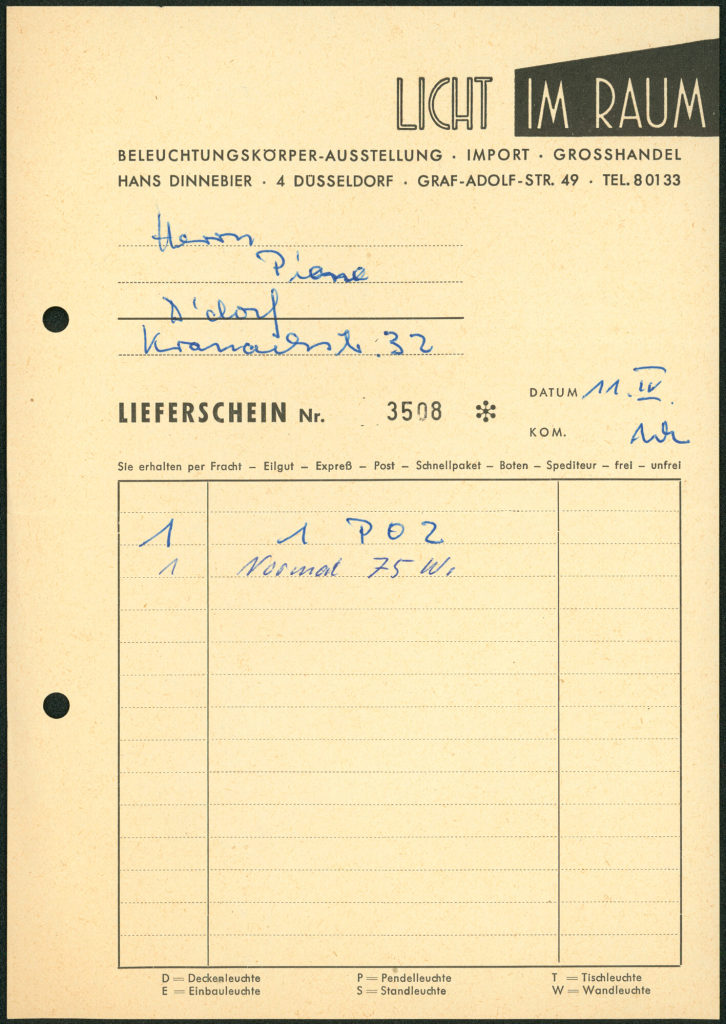 LICHT IM RAUM
BELEUCHTUNGSKÖRPER-AUSSTELLUNG · IMPORT · GROSSHANDEL
HANS DINNEBIER · 4 DÜSSELDORF · GRAF-ADOLF-STR. 49 · TEL. 80133
Herrn
Piene
D'dorf
32
DATUM 11. IV.
LIEFERSCHEIN Nr. 3508 ✻
KOM.
Sie erhalten per Fracht – Eilgut – Expreß – Post – Schnellpaket – Boten – Spediteur – frei – unfrei
1 1 P O 2
1 Normal 75 W.
D = Deckenleuchte P = Pendelleuchte T = Tischleuchte
E = Einbauleuchte S = Standleuchte W = Wandleuchte